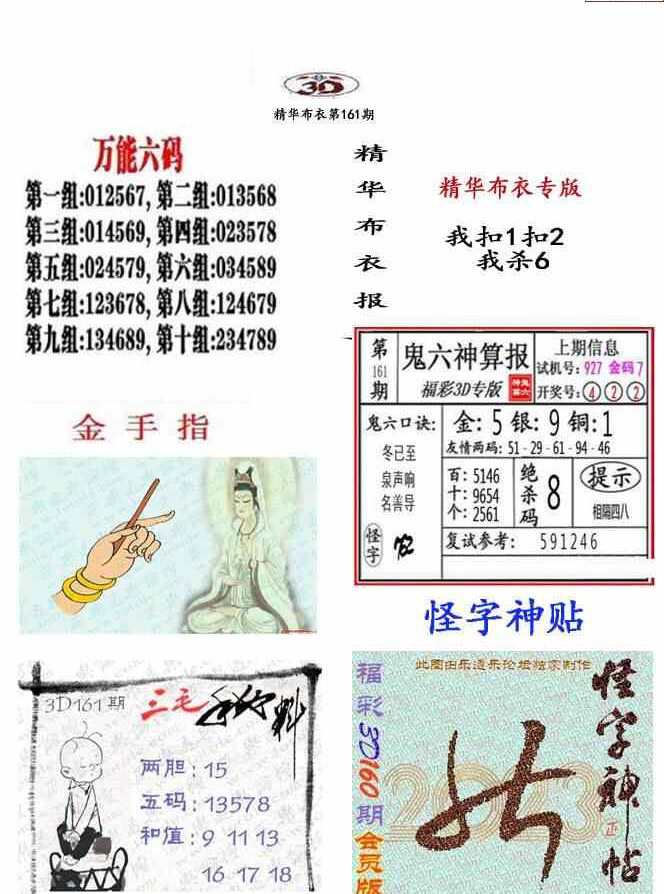 3D
精华布衣第161期
万能六码
第一组:012567, 第二组:013568
第三组:014569, 第四组:023578
第五组:024579, 第六组:034589
第七组:123678, 第八组:124679
第九组:134689, 第十组:234789
精华布衣报
精华布衣专版
我扣1扣2
我杀6
第161期
鬼六神算报
福彩3D专版
上期信息
试机号: 927 金码7
开奖号: 4 2 2
鬼六口诀:
冬已至
泉声响
名善导
金: 5 银: 9 铜: 1
友情两码: 51-29-61-94-46
百: 5146
十: 9654
个: 2561
绝杀码
8
提示
相隔四八
怪字
复试参考: 591246
金手指
怪字神贴
3D161期
三毛
料
两胆: 15
五码: 13578
和值: 9 11 13
16 17 18
此图由乐造乐论坛独家制作
福彩3D160期会员版
2023
怪字神帖